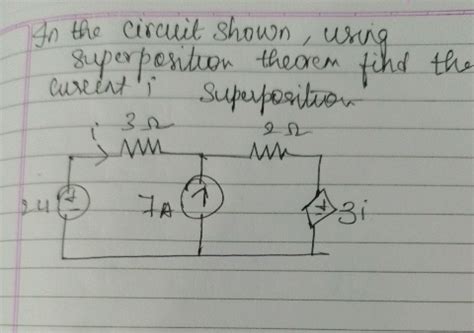 In the circuit shown, using
superposition theorem find the
current i
Superposition
i 3Ω 2Ω
24 7A 3i